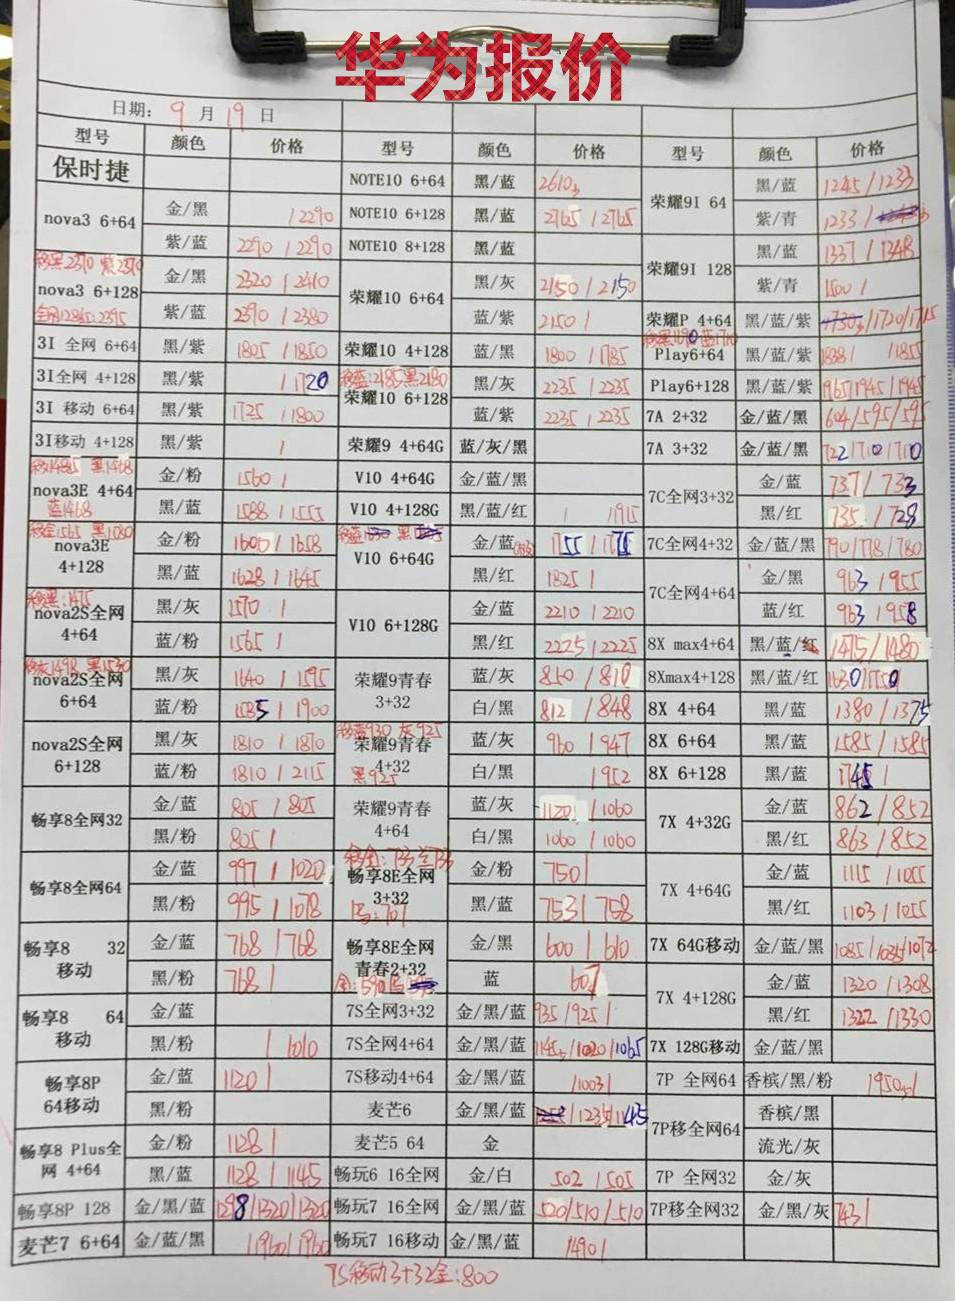 华为报价
日期: 9 月 19 日
型号 颜色 价格 型号 颜色 价格 型号 颜色 价格
保时捷
NOTE10 6+64 黑/蓝 2610
荣耀9I 64 黑/蓝 1245/1233
紫/青 1233/
nova3 6+64 金/黑 /2290
紫/蓝 2290/2290
NOTE10 6+128 黑/蓝 2765/2765
NOTE10 8+128 黑/蓝
荣耀9I 128 黑/蓝 1337/1348
紫/青 1500/
移黑2370 紫2370
nova3 6+128 金/黑 2320/2410
紫/蓝 2390/2380
荣耀10 6+64 黑/灰 2150/2150
蓝/紫 2150/
荣耀P 4+64 黑/蓝/紫 /1720/1715
3I 全网 6+64 黑/紫 1805/1850
荣耀10 4+128 蓝/黑 1800/1785
Play6+64 黑/蓝/紫 1838/ /1855
3I全网 4+128 黑/紫 /1720
移蓝:2185黑2180
荣耀10 6+128 黑/灰 2235/2235
蓝/紫 2235/2235
Play6+128 黑/蓝/紫 1965/1945/1945
3I 移动 6+64 黑/紫 1725/1800
7A 2+32 金/蓝/黑 604/595/595
3I移动 4+128 黑/紫 /
荣耀9 4+64G 蓝/灰/黑
7A 3+32 金/蓝/黑 722/710/710
黑1468
nova3E 4+64 金/粉 1560/
蓝1468 黑/蓝 1588/1555
V10 4+64G 金/蓝/黑
V10 4+128G 黑/蓝/红 / 1915
7C全网3+32 金/蓝 737/733
黑/红 735/728
移金1565 黑1580
nova3E 4+128 金/粉 1600/1658
黑/蓝 1628/1645
V10 6+64G 金/蓝 1755/1775
黑/红 1825/
7C全网4+32 金/蓝/黑 790/778/780
7C全网4+64 金/黑 963/955
蓝/红 963/958
移黑:1475
nova2S全网 4+64 黑/灰 1570/
蓝/粉 1565/
V10 6+128G 金/蓝 2210/2210
黑/红 2225/2225
8X max4+64 黑/蓝/红 1475/1480
移灰1498 黑1530
nova2S全网 6+64 黑/灰 1640/1595
蓝/粉 1585/1900
荣耀9青春 3+32 蓝/灰 850/810
白/黑 812/848
8Xmax4+128 黑/蓝/红 1630/1550
8X 4+64 黑/蓝 1380/1375
nova2S全网 6+128 黑/灰 1810/1870
蓝/粉 1810/2115
移蓝930 灰925
荣耀9青春 4+32 蓝/灰 960/947
黑925 白/黑 /952
8X 6+64 黑/蓝 1585/1585
8X 6+128 黑/蓝 1745/
畅享8全网32 金/蓝 805/805
黑/粉 805/
荣耀9青春 4+64 蓝/灰 1120/1060
白/黑 1060/1060
7X 4+32G 金/蓝 862/852
黑/红 863/852
畅享8全网64 金/蓝 997/1020
黑/粉 995/1078
畅享8E全网 3+32 金/粉 750/
黑/蓝 753/758
7X 4+64G 金/蓝 1115/1055
黑/红 1103/1055
畅享8 32 移动 金/蓝 768/768
黑/粉 768/
畅享8E全网 青春2+32 金/黑 600/610
蓝 607
7X 64G移动 金/蓝/黑 1085/1085/1072
7X 4+128G 金/蓝 1320/1308
黑/红 1322/1330
畅享8 64 移动 金/蓝
黑/粉 /1010
7S全网3+32 金/黑/蓝 935/925/
7S全网4+64 金/黑/蓝 1145/1020/1065
7X 128G移动 金/蓝/黑
畅享8P 64移动 金/蓝 1120/
黑/粉
7S移动4+64 金/黑/蓝 /1003/
7P 全网64 香槟/黑/粉 1950/
麦芒6 金/黑/蓝 /1235/1145
7P移全网64 香槟/黑
流光/灰
畅享8 Plus全网 4+64 金/粉 1128/
黑/蓝 1128/1145
麦芒5 64 金
畅玩6 16全网 金/白 502/505
7P 全网32 金/灰
畅享8P 128 金/黑/蓝 1298/1320/1320
畅玩7 16全网 金/黑/蓝 520/510/510
7P移全网32 金/黑/灰 743/
麦芒7 6+64 金/蓝/黑 /1960/1960
畅玩7 16移动 金/黑/蓝 /490/
7S移动3+32金:800